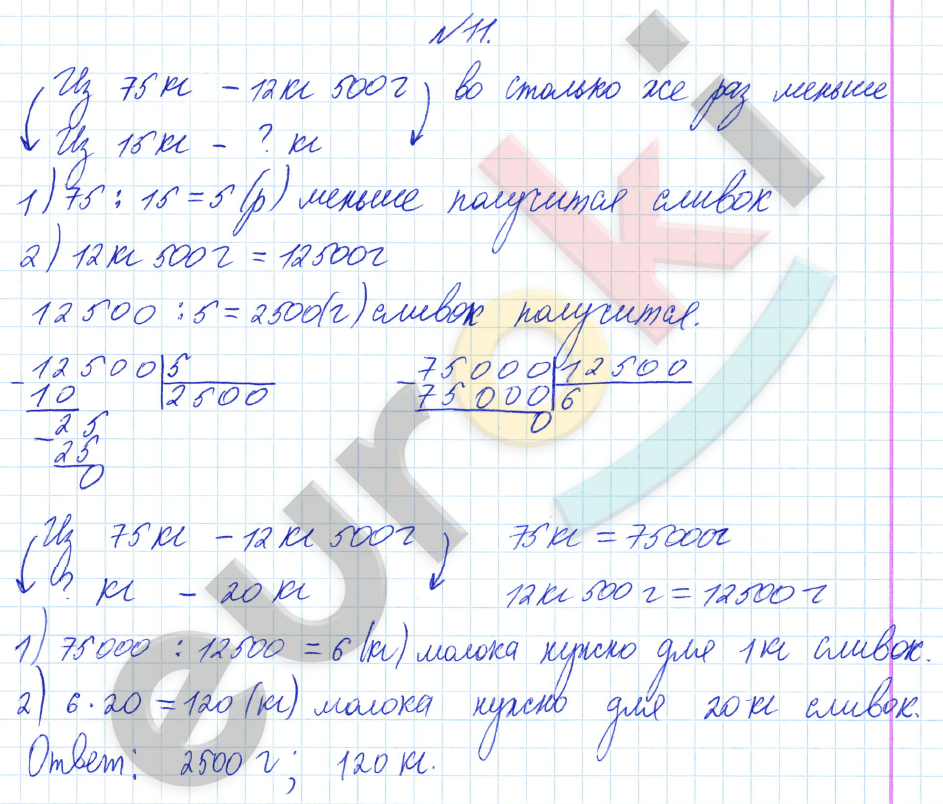 №11.
Из 75кг - 12кг 500г во столько же раз меньше
Из 15кг - ? кг
1) 75 : 15 = 5 (р) меньше получится сливок
2) 12кг 500г = 12500г
12500 : 5 = 2500(г) сливок получится.
- 12500 | 5     - 75000 | 12500
10 | 2500     75000 | 6
- 25     0
25
0
Из 75кг - 12кг 500г     75кг = 75000г
? кг - 20кг     12кг 500г = 12500г
1) 75000 : 12500 = 6 (кг) молока нужно для 1кг сливок.
2) 6 · 20 = 120 (кг) молока нужно для 20кг сливок.
Ответ: 2500г; 120кг.
euroki